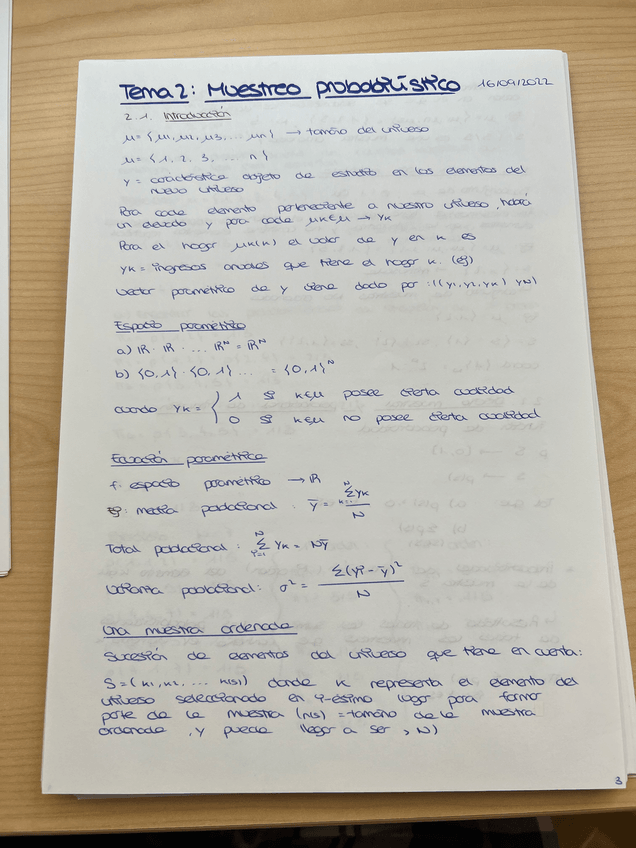 Tema 2: Muestreo probabilístico 16/09/2022
2.1. Introducción
μ = {μ1, μ2, μ3, ... μn} → tamaño del universo
μ = {1, 2, 3, ... n}
y = característica objeto de estudio en los elementos del
nuevo universo
Para cada elemento perteneciente a nuestro universo, habrá
un elevado y para cada μk∈μ → yk
Para el hogar μk(k) el valor de y en k es
yk = ingresos anuales que tiene el hogar k. (ej)
Vector paramétrico de y viene dado por: ((y1, y2, yk) yN)
Espacio paramétrico
a) ℝ · ℝ · ... ℝᴺ = ℝᴺ
b) {0,1} · {0,1} ... = {0,1}ᴺ
cuando yk = { 1 si k∈μ posee cierta cualidad
0 si k∈μ no posee cierta cualidad
Ecuación paramétrica
f: espacio paramétrico → ℝ
ej: media poblacional: ȳ = Σ yk / N
Total poblacional: Σ yk = Nȳ
Varianza poblacional: σ² = Σ(yi - ȳ)² / N
Una muestra ordenada
Sucesión de elementos del universo que tiene en cuenta:
S = (k1, k2, ... k(s)) donde k representa el elemento del
universo seleccionado en i-ésimo lugar para formar
parte de la muestra (n(s) = tamaño de la muestra
ordenada, y puede llegar a ser, N)
3